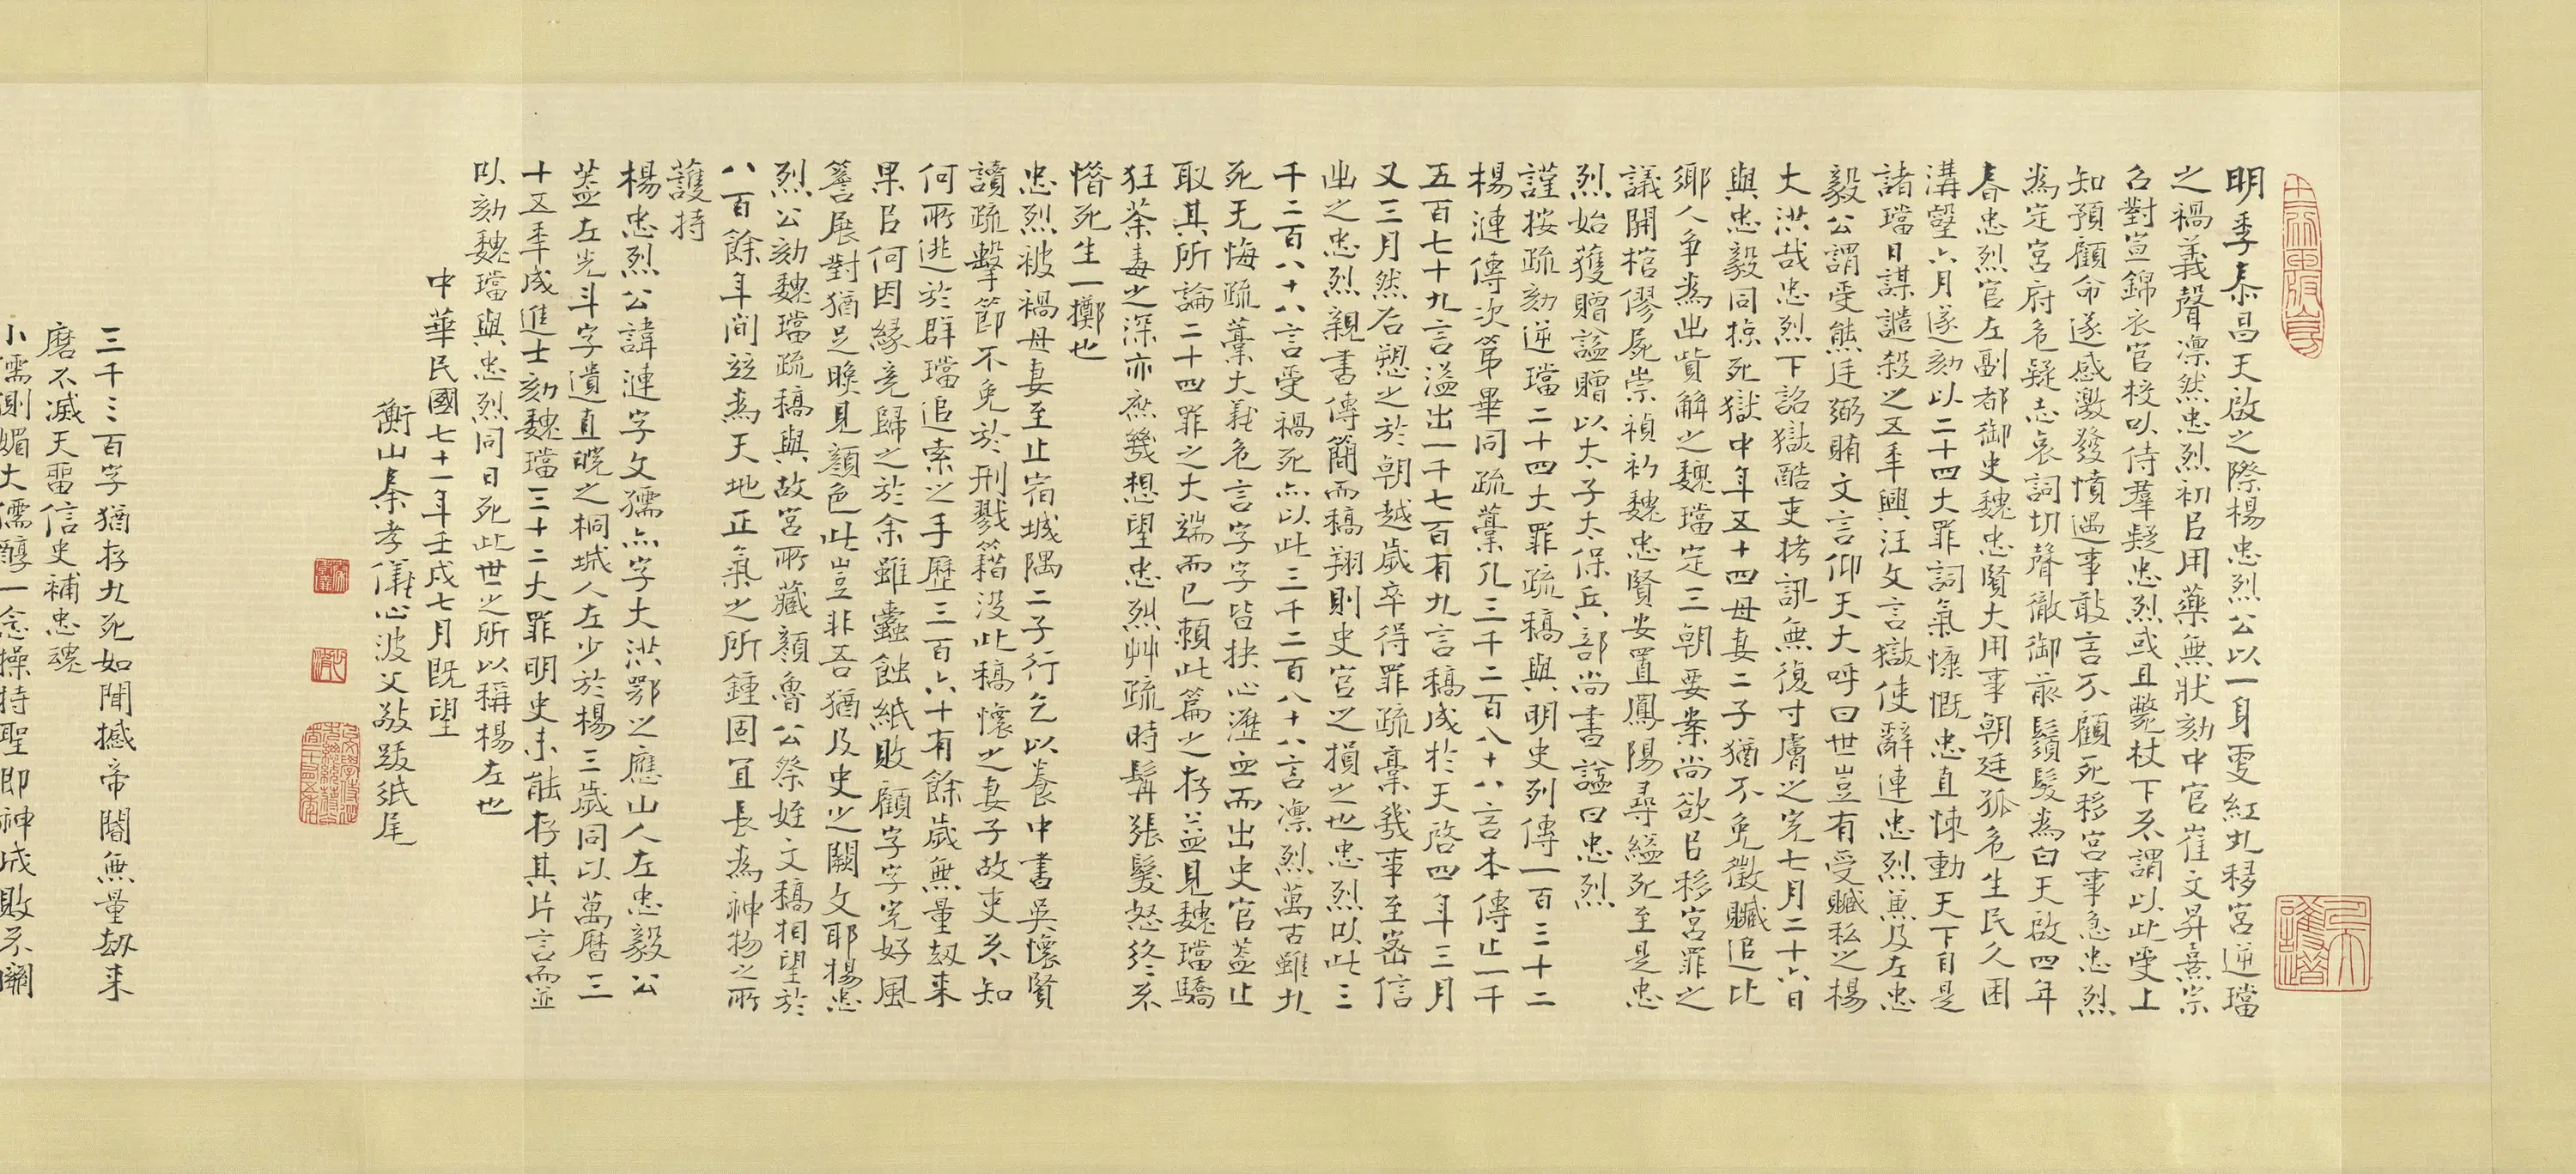 明季泰昌天啟之際楊忠烈公以一身更紅丸移宮逆璫
之禍義聲凛然忠烈初㠯用藥無狀劾中官崔文昇熹宗
召對宣錦衣官校以侍羣疑忠烈或且斃杖下不謂以此受上
知預顧命遂感激發憤遇事敢言不顧死移宮事急忠烈
為定宮府危疑志哀詞切聲徹御前鬚髮為白天啟四年
春忠烈官左副都御史魏忠賢大用事朝廷孤危生民久困
溝壑六月遂劾以二十四大罪詞氣慷慨忠直悚動天下自是
諸璫日謀譖殺之五年興汪文言獄使辭連忠烈兼及左忠
毅公謂受熊廷弼賄文言仰天大呼曰世豈有受贓私之楊
大洪哉忠烈下詔獄酷吏拷訊無復寸膚之完七月二十六日
與忠毅同掠死獄中年五十四母妻二子猶不免徵贓追比
鄉人爭為出貲解之魏璫定三朝要案尚欲㠯移宮罪之
議開棺僇屍崇禎初魏忠賢安置鳳陽尋縊死至是忠
烈始獲贈謚贈以太子太保兵部尚書謚曰忠烈
謹按疏劾逆璫二十四大罪疏稿與明史列傳一百三十二
楊漣傳次第畢同疏藁凡三千二百八十八言本傳止一千
五百七十九言溢出一千七百有九言稿成於天啓四年三月
又三月然后愬之於朝越歲卒得罪疏藁幾事至密信
出之忠烈親書傳簡而稿翔則史官之損之也忠烈以此三
千二百八十八言受禍死亦以此三千二百八十八言凛烈萬古雖九
死无悔疏藁大義危言字字皆抉心瀝血而出史官蓋止
取其所論二十四罪之大端而已賴此篇之存益見魏璫驕
狂荼毒之深亦庶幾想望忠烈艸疏時髯張髮怒終不
惛死生一擲也
忠烈被禍母妻至止宿城隅二子行乞以養中書吳懷賢
讀疏擊節不免於刑戮籍沒此稿懷之妻子故吏不知
何所逃於群璫追索之手歷三百六十有餘歲無量劫來
果㠯何因緣竟歸之於余雖蠹蝕紙敗顧字字完好風
簷展對猶足睒見顏色此豈非吾猶及史之闕文耶楊忠
烈公劾魏璫疏稿與故宮所藏顏魯公祭姪文稿相望於
八百餘年間竝為天地正氣之所鍾固宜長為神物之所
護持
楊忠烈公諱漣字文孺亦字大洪鄂之應山人左忠毅公
蓋左光斗字遺直皖之桐城人左少於楊三歲同以萬曆三
十五年成進士劾魏璫三十二大罪明史未能存其片言而並
以劾魏璫與忠烈同日死此世之所以稱楊左也
中華民國七十一年壬戌七月既望
衡山秦孝儀心波父敬跋紙尾
三千三百字猶存九死如聞撼帝閽無量劫來
磨不滅天畱信史補忠魂
小儒側媚大儒醇一念操持聖即神成敗不關